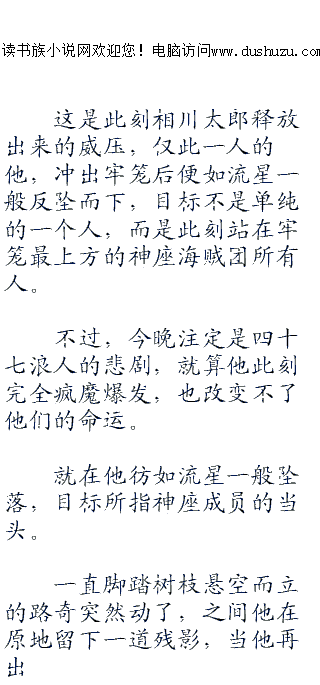 读书族小说网欢迎您！电脑访问www.dushuzu.com
这是此刻相川太郎释放
出来的威压，仅此一人的
他，冲出牢笼后便如流星一
般反坠而下，目标不是单纯
的一个人，而是此刻站在牢
笼最上方的神座海贼团所有
人。
不过，今晚注定是四十
七浪人的悲剧，就算他此刻
完全疯魔爆发，也改变不了
他们的命运。
就在他彷如流星一般坠
落，目标所指神座成员的当
头。
一直脚踏树枝悬空而立
的路奇突然动了，之间他在
原地留下一道残影，当他再
出